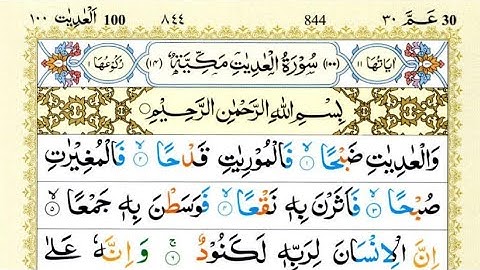 ٣٠ عَمَّ 30 844 ٨٤٤ 100 اَلْعٰدِيٰت ١٠٠
اٰيَاتُهَا ١١ (١٠٠) سُوْرَةُ الْعٰدِيٰتِ مَكِّيَّةٌ (١٤) رُكُوْعُهَا ١
بِسْمِ اللّٰهِ الرَّحْمٰنِ الرَّحِيْمِ
وَالْعٰدِيٰتِ ضَبْحًا ۙ١ فَالْمُوْرِيٰتِ قَدْحًا ۙ٢ فَالْمُغِيْرٰتِ
صُبْحًا ۙ٣ فَاَثَرْنَ بِهٖ نَقْعًا ۙ٤ فَوَسَطْنَ بِهٖ جَمْعًا ۙ٥
اِنَّ الْاِنْسَانَ لِرَبِّهٖ لَكَنُوْدٌ ۚ٦ وَاِنَّهٗ عَلٰى